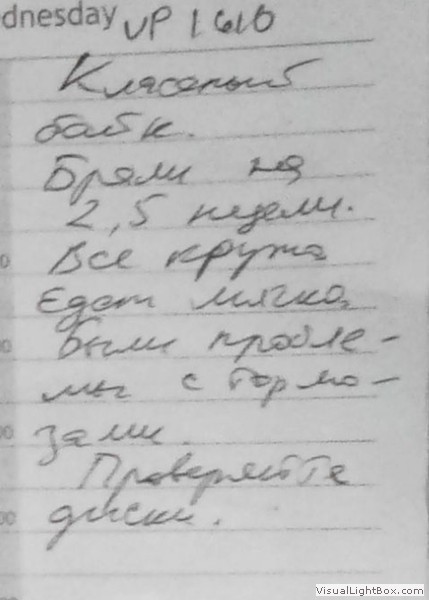 dnesday UP 1610
Класный
байк.
Брали на
2,5 недели.
Все круто
Едет мягко,
были пробле-
мы с тормо-
зами.
Проверяйте
диски.
VisualLightBox.com